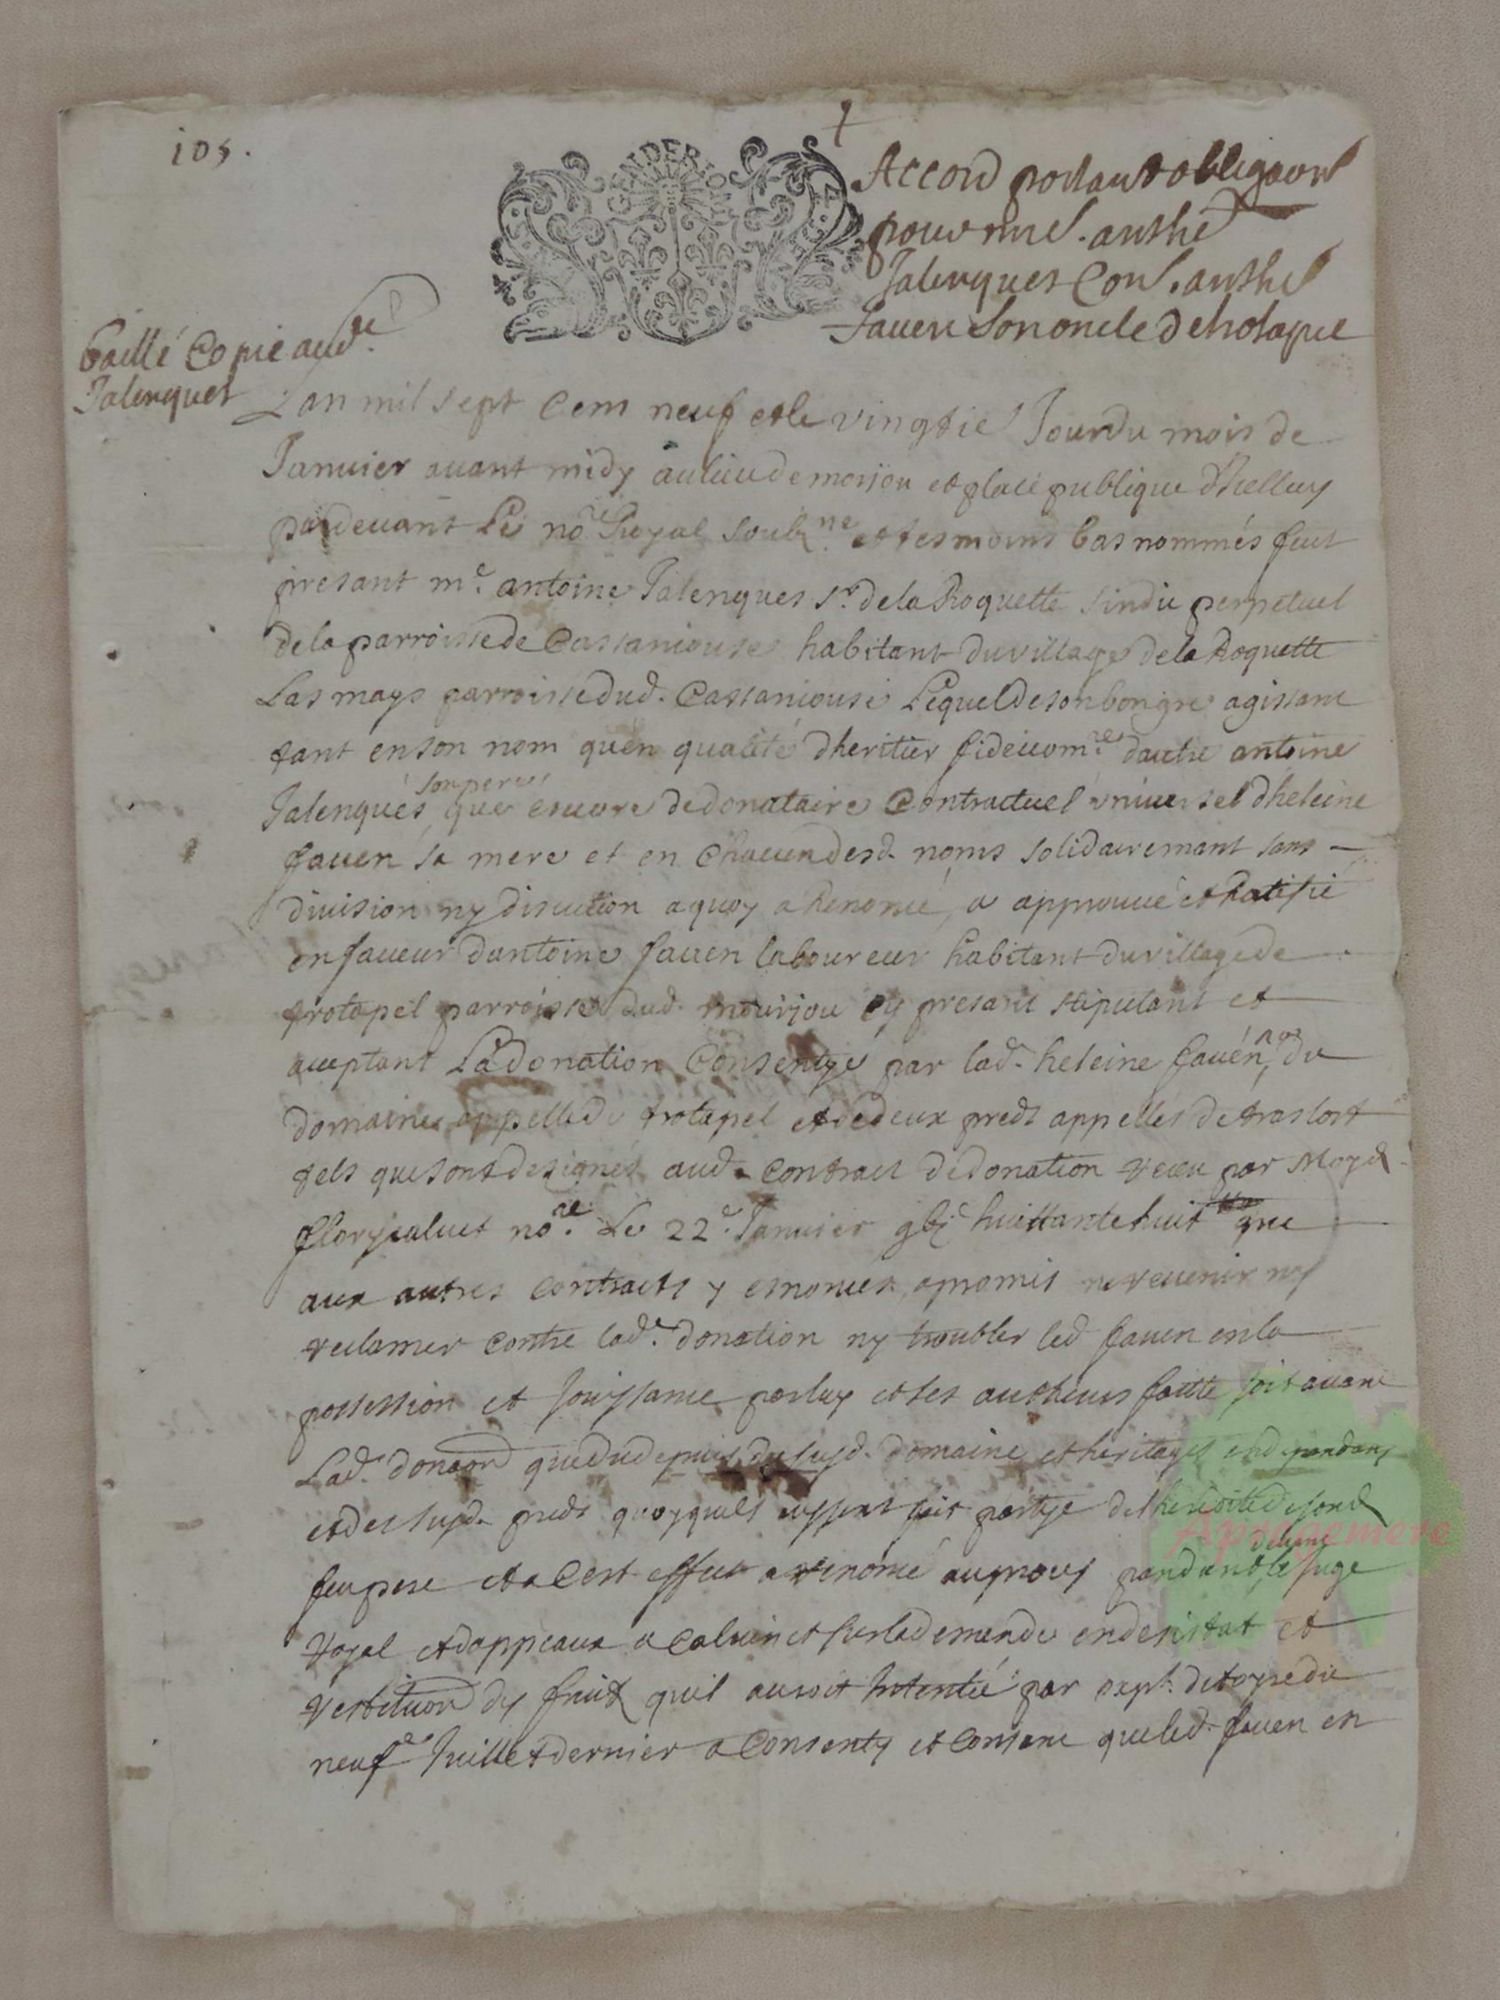 105.
GENDERIOM
Accord portant obligaon
pour me. anthe
Jalenques Con. anthe
fauen son oncle de trotapel
baillé copie aud.
Jalenques
L an mil sept cens neuf et le vingtie Jour du mois de
Januier auant midy au lieu de morjou et place publique
pardeuant Le nore Royal soubz.ne et tesmoins bas nommés feut
presant me. antoine Jalenques sr. de la Roquette sindic perpetuel
de la parroisse de Cassaniouse habitant du village de la Roquette
Las mays parroisse dud. Cassaniouse Lequel de son bon gre agissant
tant en son nom quen qualité dheritier fideicom.re dautre antoine
Jalenques son pere que encore de donataire Contractuel vniuersel dheleine
fauen sa mere et en Chacun desd. noms solidairemant sans
diuision ny discution a quoy a Renoncé, a approuué et Ratifié
en faueur dantoine fauen laboureur habitant du village de
trotapel parroisse dud. mourjou cy presant stipulant et
aceptant La donation Consentye par lad. heleine fauen, du
domaine appellé de trotapel et de deux preds appelles de tras lort
tels que sont designés aud. contract de donation receu par Moy
no.re Le 22e. Januier gbic huittante huit que
aux autres contracts y enonces, a promis ne reuenir ny
reclamer contre lad.e donation ny troubler led fauen en la
possession et jouissance par luy et ses autheurs faitte soit auant
Lad. donaon que du depuis du susd. domaine et heritages en dependans
et des susd. preds quoyquils eussent fait partye de lheredité de sond
feu pere et a Cest effet a renoncé au proces pandant deuant le Juge
royal et dappeaux a Caluinet sur la demande en desistat et
restituon dy fruit quil auroit Intenté par expt. de du
neufe Juillet dernier a Consenty et Consent que led. fauen en
Apragemere